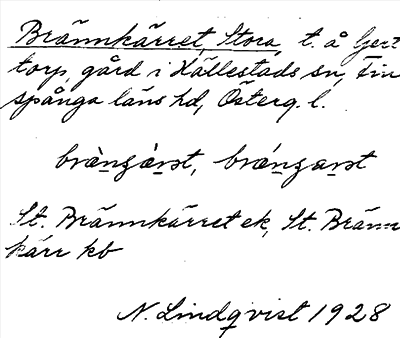 Brännkärret, Stora, t. å Gert
torp, gård i Hällestads sn, Fin
spånga läns hd, Österg. l.
St. Brännkärret ek, St. Bränn
kärr kb
N. Lindqvist 1928